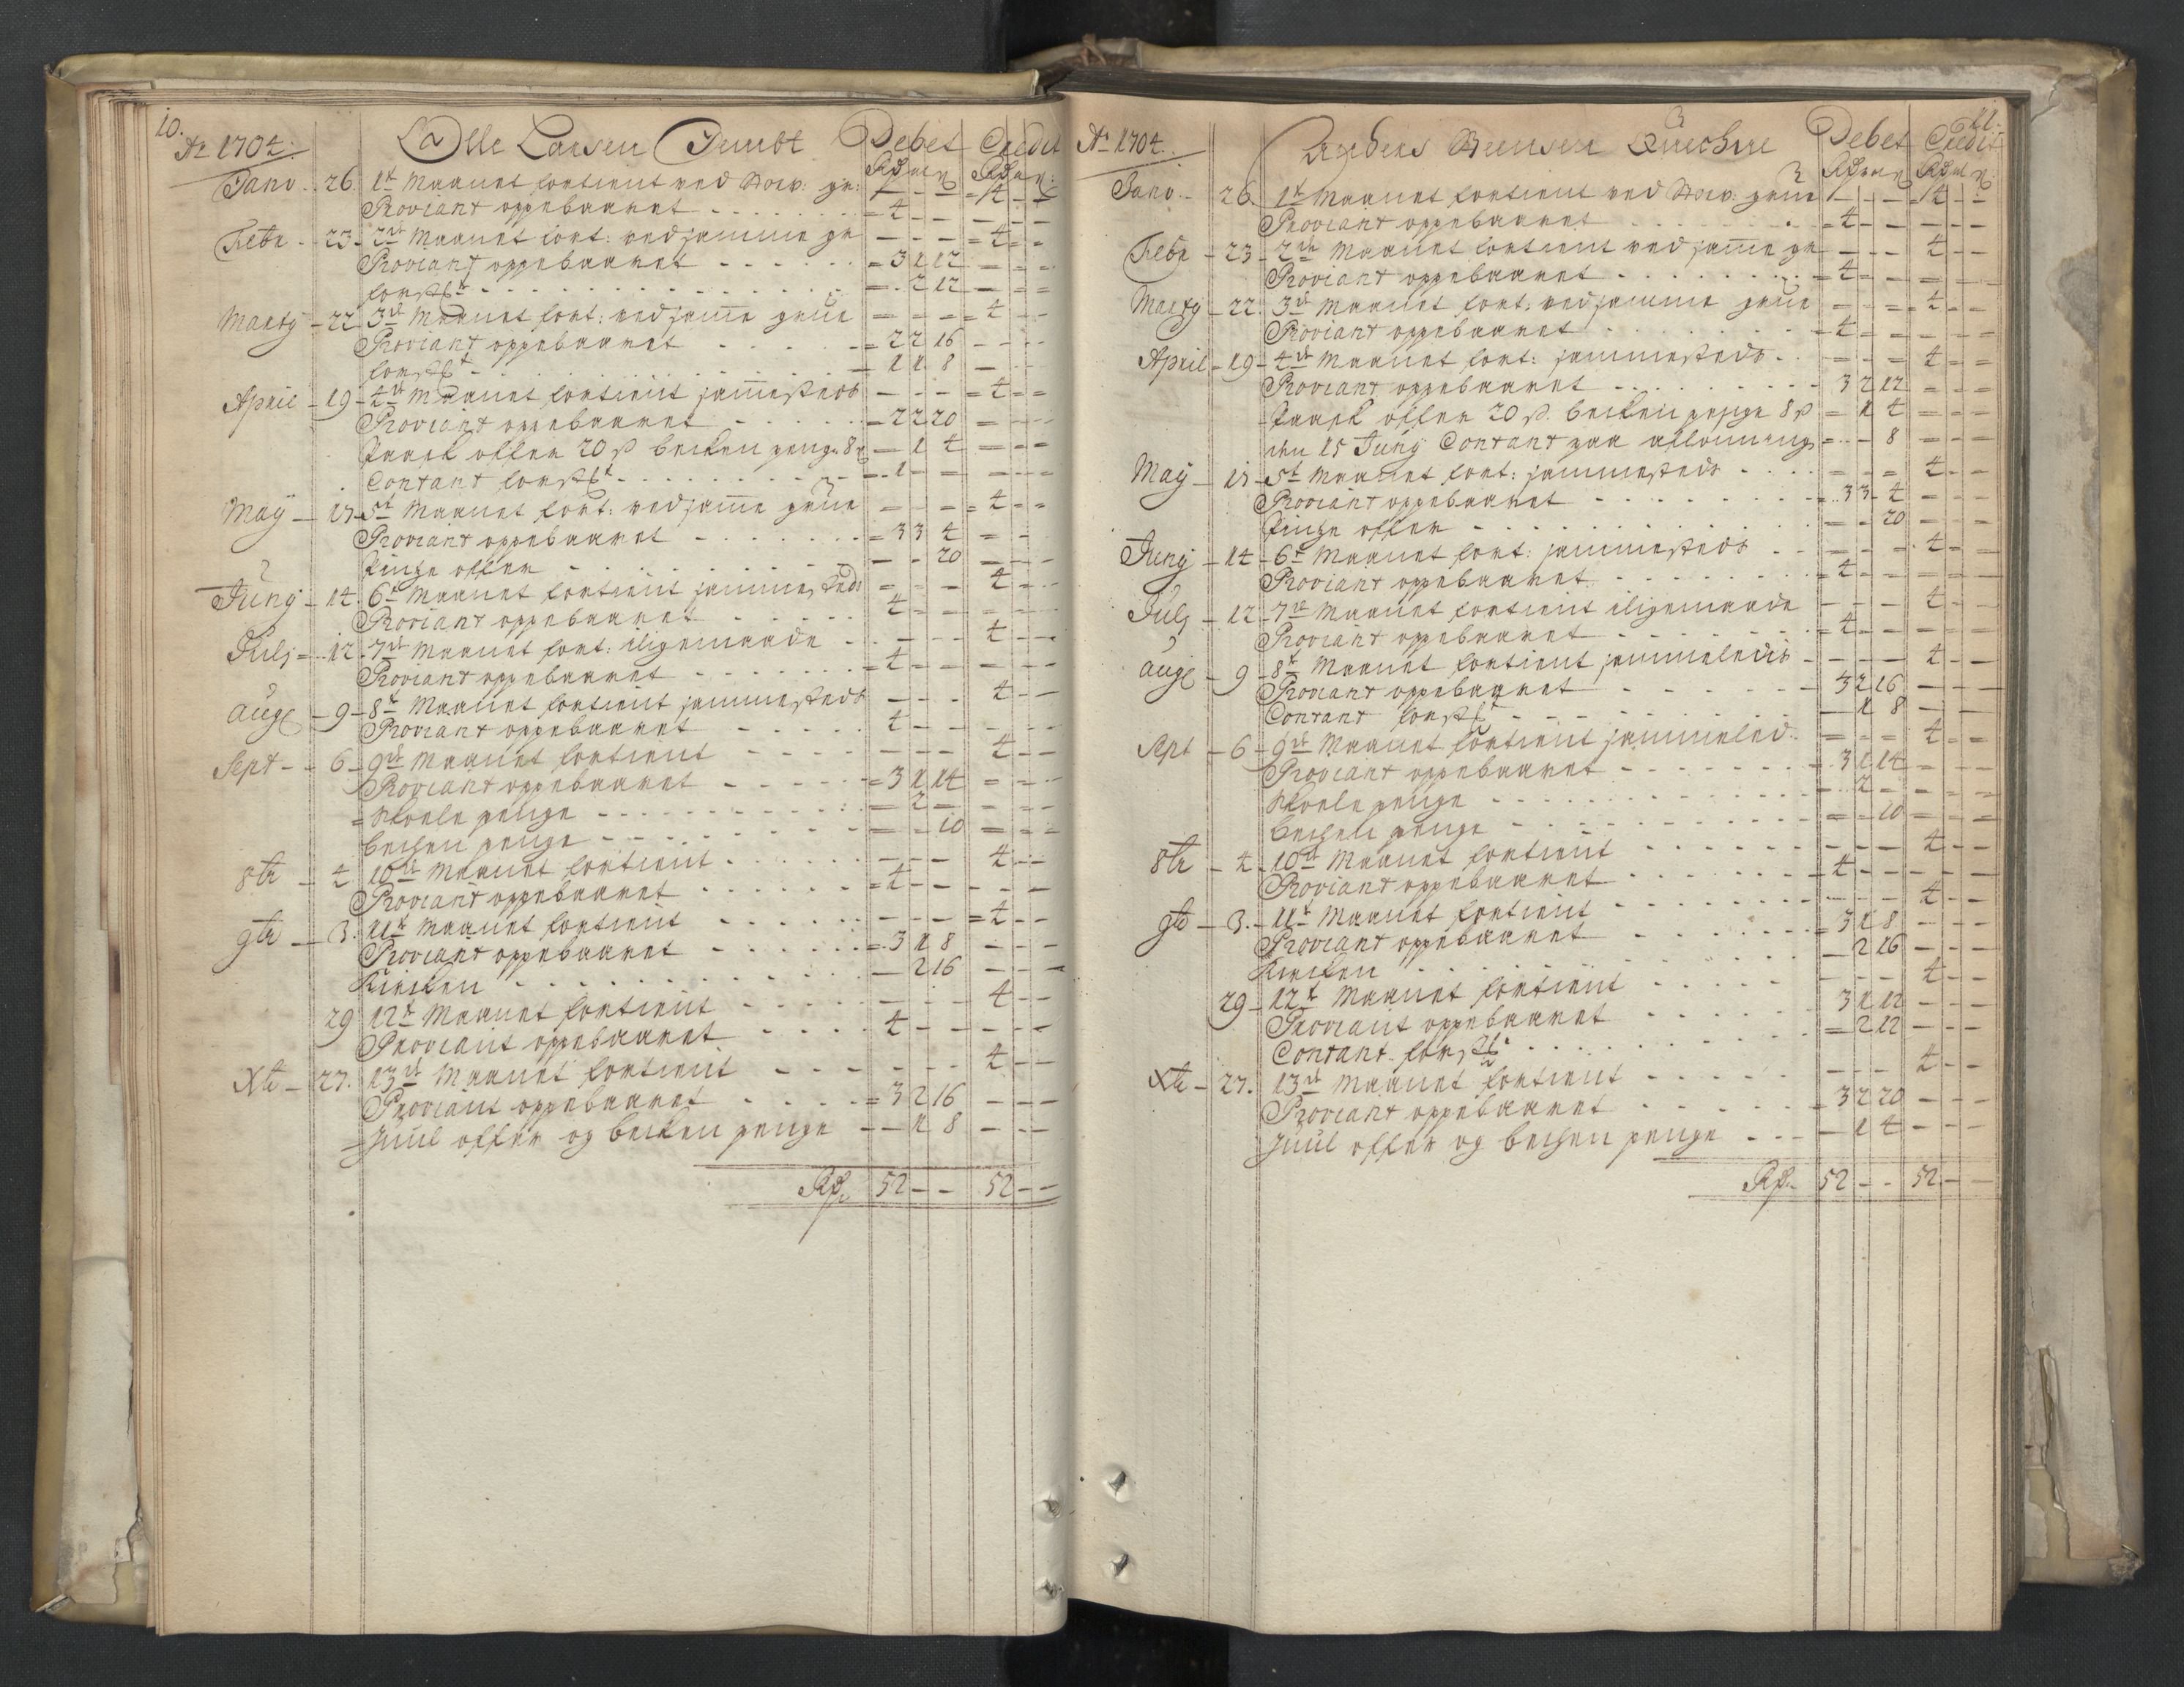 10.
Aō 1704. Olle Larsen Debet Credit
Rdr m ß Rdr m ß
Janv. 26. 1t Maanet fortient ved Norv: gr: – – – 4 – –
Proviant oppebaaret 4 – – – – –
Febr 23 2de Maanet fort: ved samme gr – – – 4 – –
Proviant oppebaaret 3 1 12 – – –
2 12 – – –
Marty 22 3de Maanet fort: ved same grue – – – 4 – –
Proviant oppebaaret 2 2 16 – – –
1 1 8 – – –
April 19 4de Maanet fortient samesteds – – – 4 – –
Proviant oppebaaret 2 2 20 – – –
Paask offer 20 ß becken penge 8 ß – 1 4 – – –
Contant 1 – – – – –
May 17 5t Maanet fort: ved same grue – – – 4 – –
Proviant oppebaaret 3 3 4 – – –
Pintze offer – – 20 – – –
Juny 14 6t Maanet fortient sammesteds – – – 4 – –
Proviant oppebaaret 4 – – – – –
July 12 7de Maanet fort: iligemaade – – – 4 – –
Proviant oppebaaret 4 – – – – –
Aug 9 8t Maanet fortient sammesteds – – – 4 – –
Proviant oppebaaret 4 – – – – –
Sept 6 9de Maanet fortient – – – 4 – –
Proviant oppebaaret 3 1 14 – – –
Skole penge – 2 – – – –
Becken penge – – 10 – – –
8br 4 10de Maanet fortient – – – 4 – –
Proviant oppebaaret 4 – – – – –
9br 3. 11t Maanet fortient – – – 4 – –
Proviant oppebaaret 3 1 8 – – –
Kircken – 2 16 – – –
29 12t Maanet fortient – – – 4 – –
Proviant oppebaaret 4 – – – – –
Xbr 27. 13de Maanet fortient – – – 4 – –
Proviant oppebaaret 3 2 16 – – –
Juul offer og becken penge – 1 8 – – –
Rdr 52 – – 52 – –
11.
Aō 1704. Anders Debet Credit
Rdr m ß Rdr m ß
Janv. 26. 1t Maanet fortient ved Norv: grue – – – 4 – –
Proviant oppebaaret 4 – – – – –
Febr 23 2de Maanet fortient ved same gr – – – 4 – –
Proviant oppebaaret 4 – – – – –
Marty 22. 3de Maanet fort: ved samme grue – – – 4 – –
Proviant oppebaaret 4 – – – – –
April 19 4de Maanet fort: sammesteds – – – 4 – –
Proviant oppebaaret 3 2 12 – – –
Paask offer 20 ß. becken penge 8 ß – 1 4 – – –
den 15 Juny Contant paa aflonning – – 8 – – –
May 17 5t Maanet fort: sammesteds – – – 4 – –
Proviant oppebaaret 3 3 4 – – –
Pintze offer – – 20 – – –
Juny 14 6t Maanet fort: sammesteds – – – 4 – –
Proviant oppebaaret 4 – – – – –
July 12 7de Maanet fortient iligemaade – – – 4 – –
Proviant oppebaaret 4 – – – – –
Aug 9 8t Maanet fortient sammeledis – – – 4 – –
Proviant oppebaaret 3 2 16 – – –
Contant – 1 8 – – –
Sept 6 9de Maanet fortient sammeled: – – – 4 – –
Proviant oppebaaret 3 1 14 – – –
Skole penge – 2 – – – –
Becken penge – – 10 – – –
8br 4 10de Maanet fortient – – – 4 – –
Proviant oppebaaret 4 – – – – –
9br 3. 11t Maanet fortient – – – 4 – –
Proviant oppebaaret 3 1 8 – – –
Kircken – 2 16 – – –
29 12t Maanet fortient – – – 4 – –
Proviant oppebaaret 3 1 12 – – –
Contant – 2 12 – – –
Xbr 27. 13de Maanet fortient – – – 4 – –
Proviant oppebaaret 3 2 20 – – –
Juul offer og becken penge – 1 4 – – –
Rdr 52 – – 52 – –